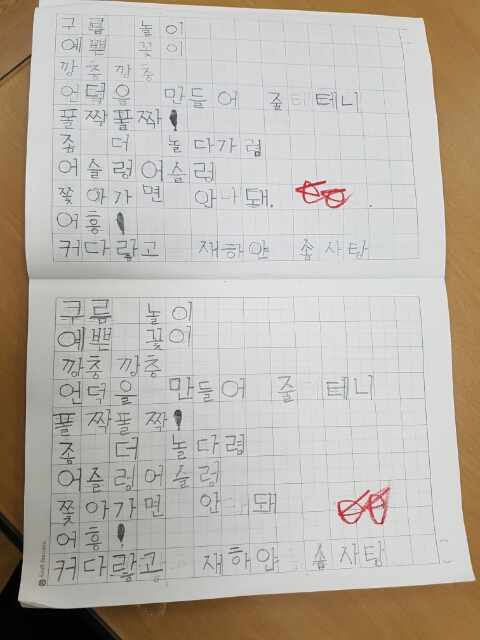 구름 놀이
예쁜 꽃이
깡충깡충
언덕을 만들어 줄테테니
폴짝폴짝!
좀 더 놀다가렴
어슬렁어슬렁
쫓아가면 안나돼.
어흥!
커다랗고 재하얀 솜사탕
구름 놀이
예쁜 꽃이
깡충 깡충
언덕을 만들어 줄 테니
폴짝폴짝!
좀 더 놀다렴
어즐렁어슬렁
쫓아가면 안 돼
어흥!
커다랗고 재하얀 솜사탕